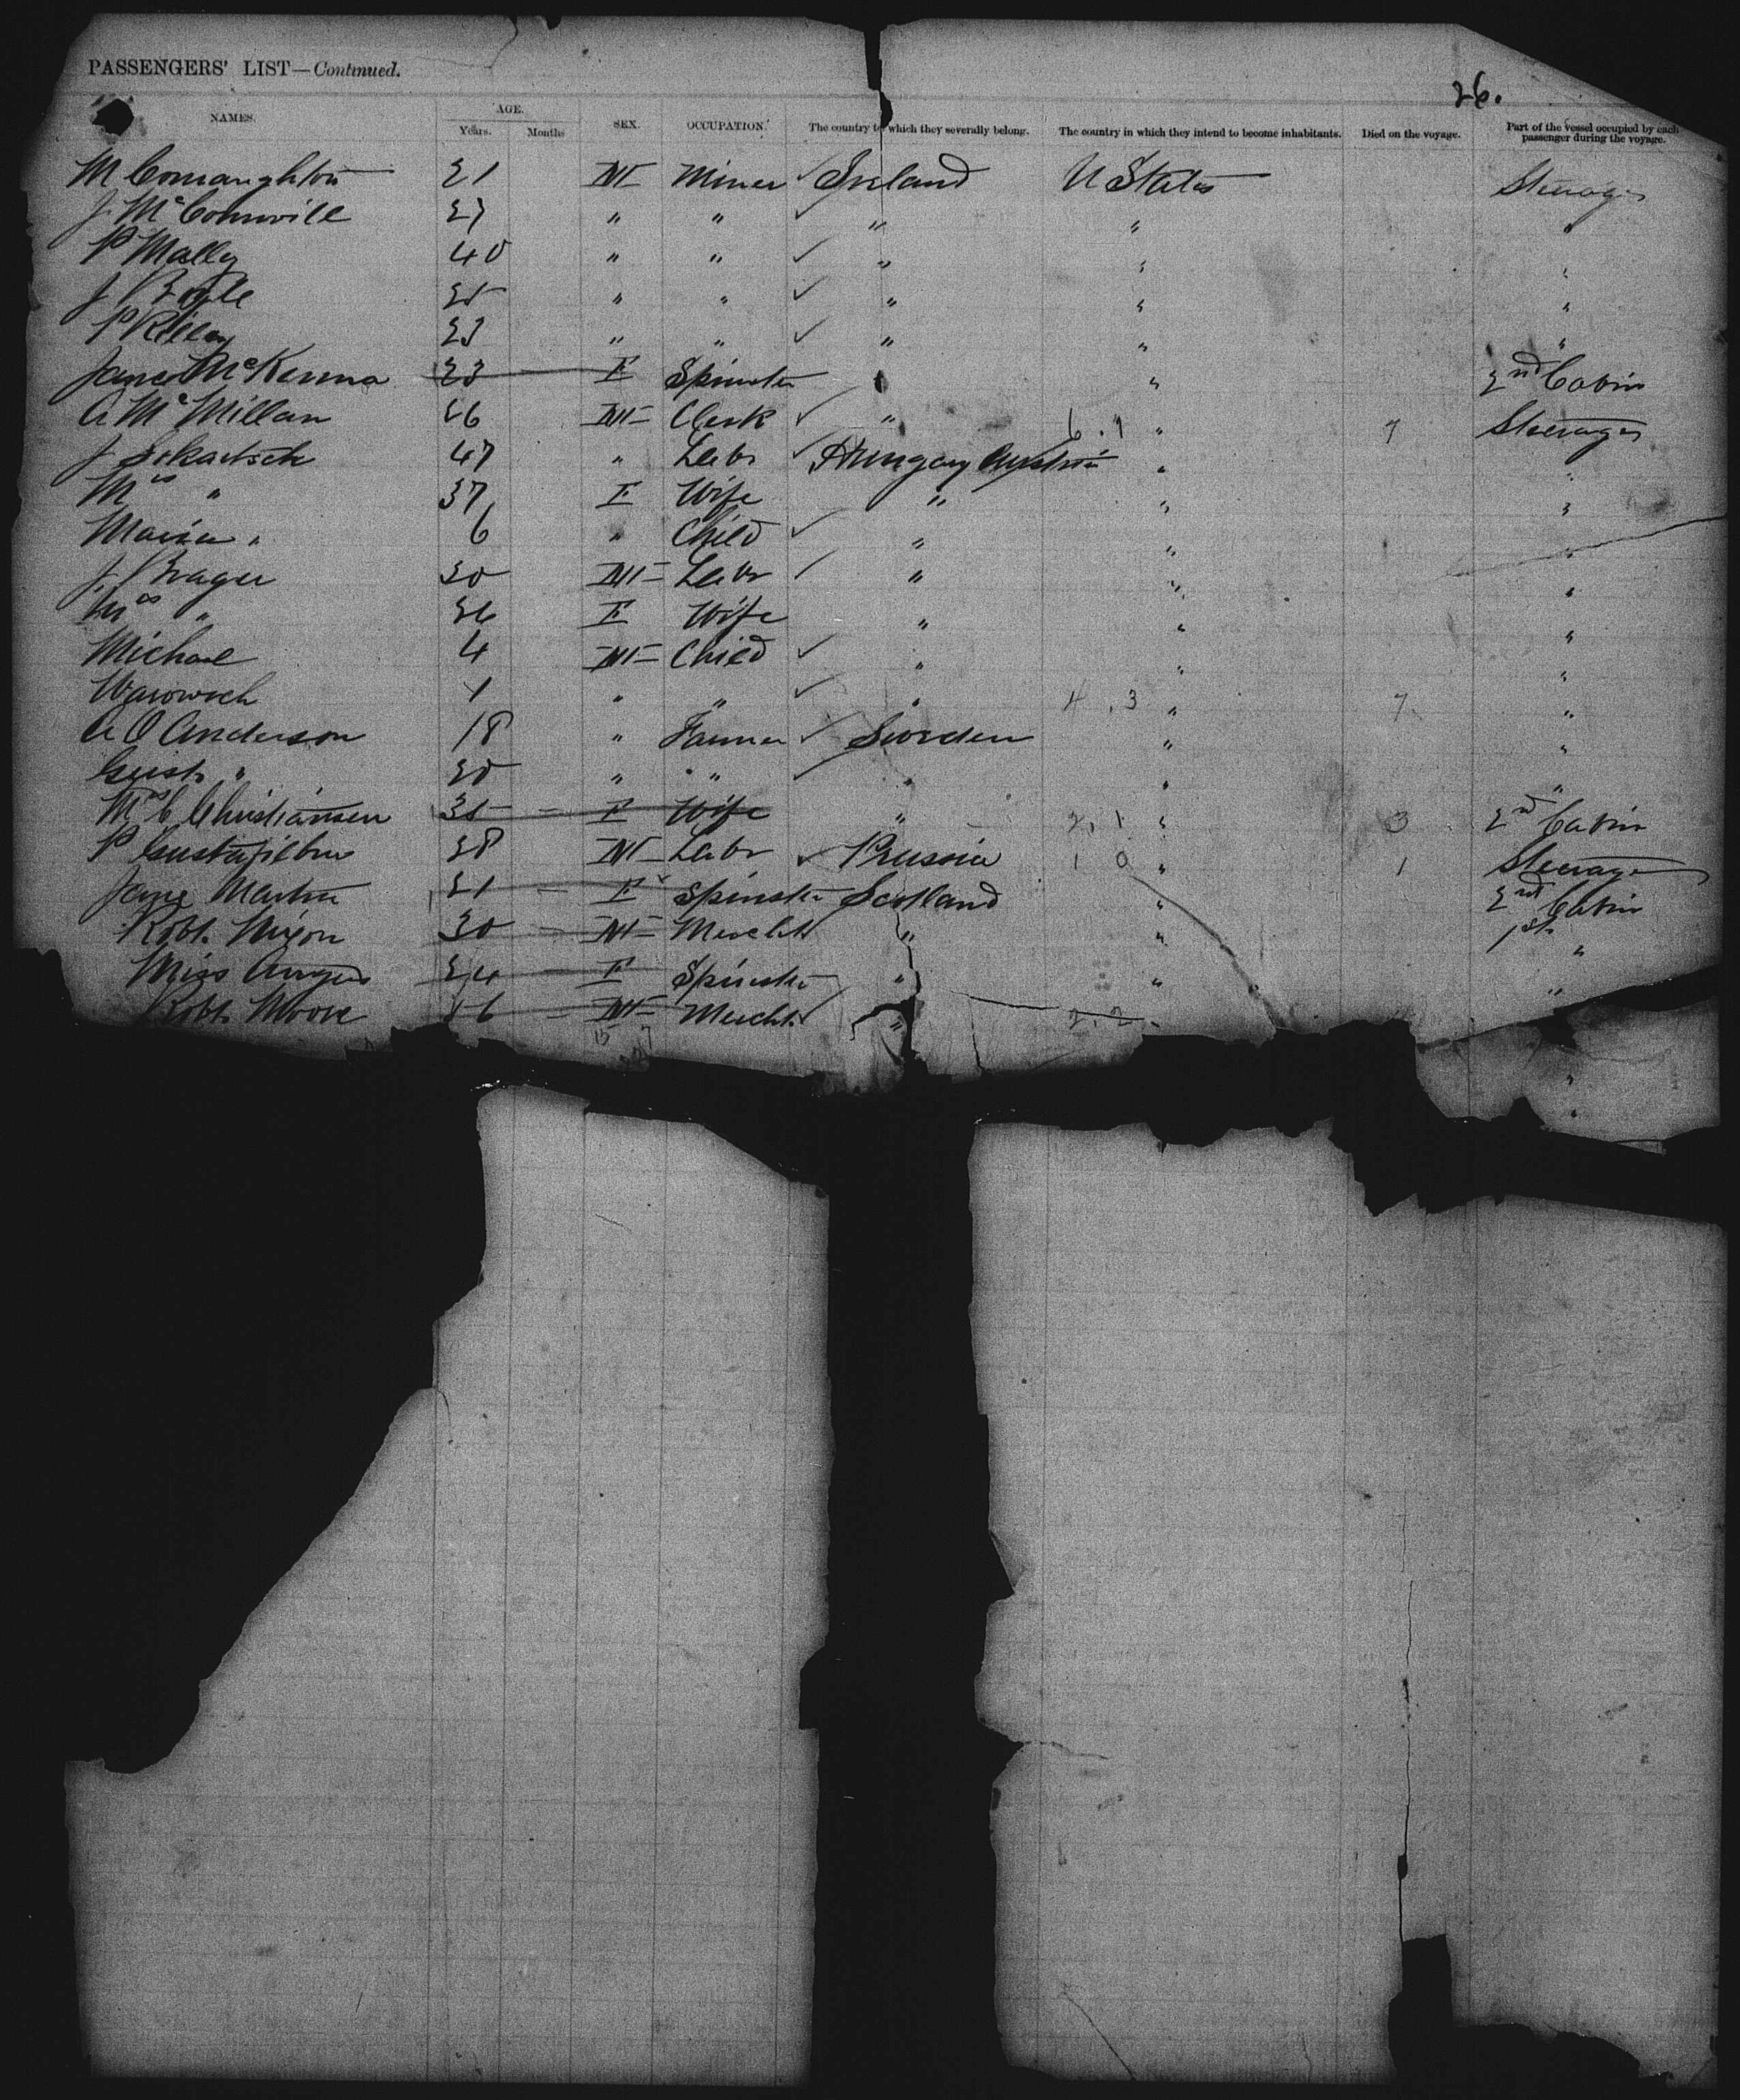 26.
PASSENGERS' LIST—Continued.
NAMES. AGE. Years. Months SEX. OCCUPATION. The country to which they severally belong. The country in which they intend to become inhabitants. Died on the voyage. Part of the vessel occupied by each passenger during the voyage.
M Connaughton 21 M Miner ✓ Ireland U States Steerage
J. McConnvill 27 " " ✓ " " "
P Mally 40 " " ✓ " " "
J Boyle " " ✓ " " "
P Rilley 23 " " ✓ " " "
Jane McKenna 23 F Spinster " 2nd Cabin
A McMillan 26 M Clerk ✓ " 6.1 " 7 Steerage
J 47 " Labr ✓ Hungary Austria " "
Mrs " 37 F Wife " " "
Maria " 6 " Child ✓ " " "
J. Prager 30 M Labr ✓ " " "
Mrs " 26 F Wife " " "
Michael 4 M Child ✓ " " "
1 " " ✓ " 4.3 " 7 "
A O Anderson 18 " Farmer ✓ Sweden " "
Gust. " 20 " " ✓ " " "
Mrs C Christiansen F Wife " 2,1 " 3 2nd Cabin
P 28 M Labr ✓ Prussia 1 0 " 1 Steerage
Jane Martin 21 F Spinster Scotland " 2nd Cabin
Robt. Nixon 30 M Mercht " " 1st "
Miss Angus 24 F Spinster " " "
Robt. Moore M Mercht. " 2.2 "
15 7
"
"